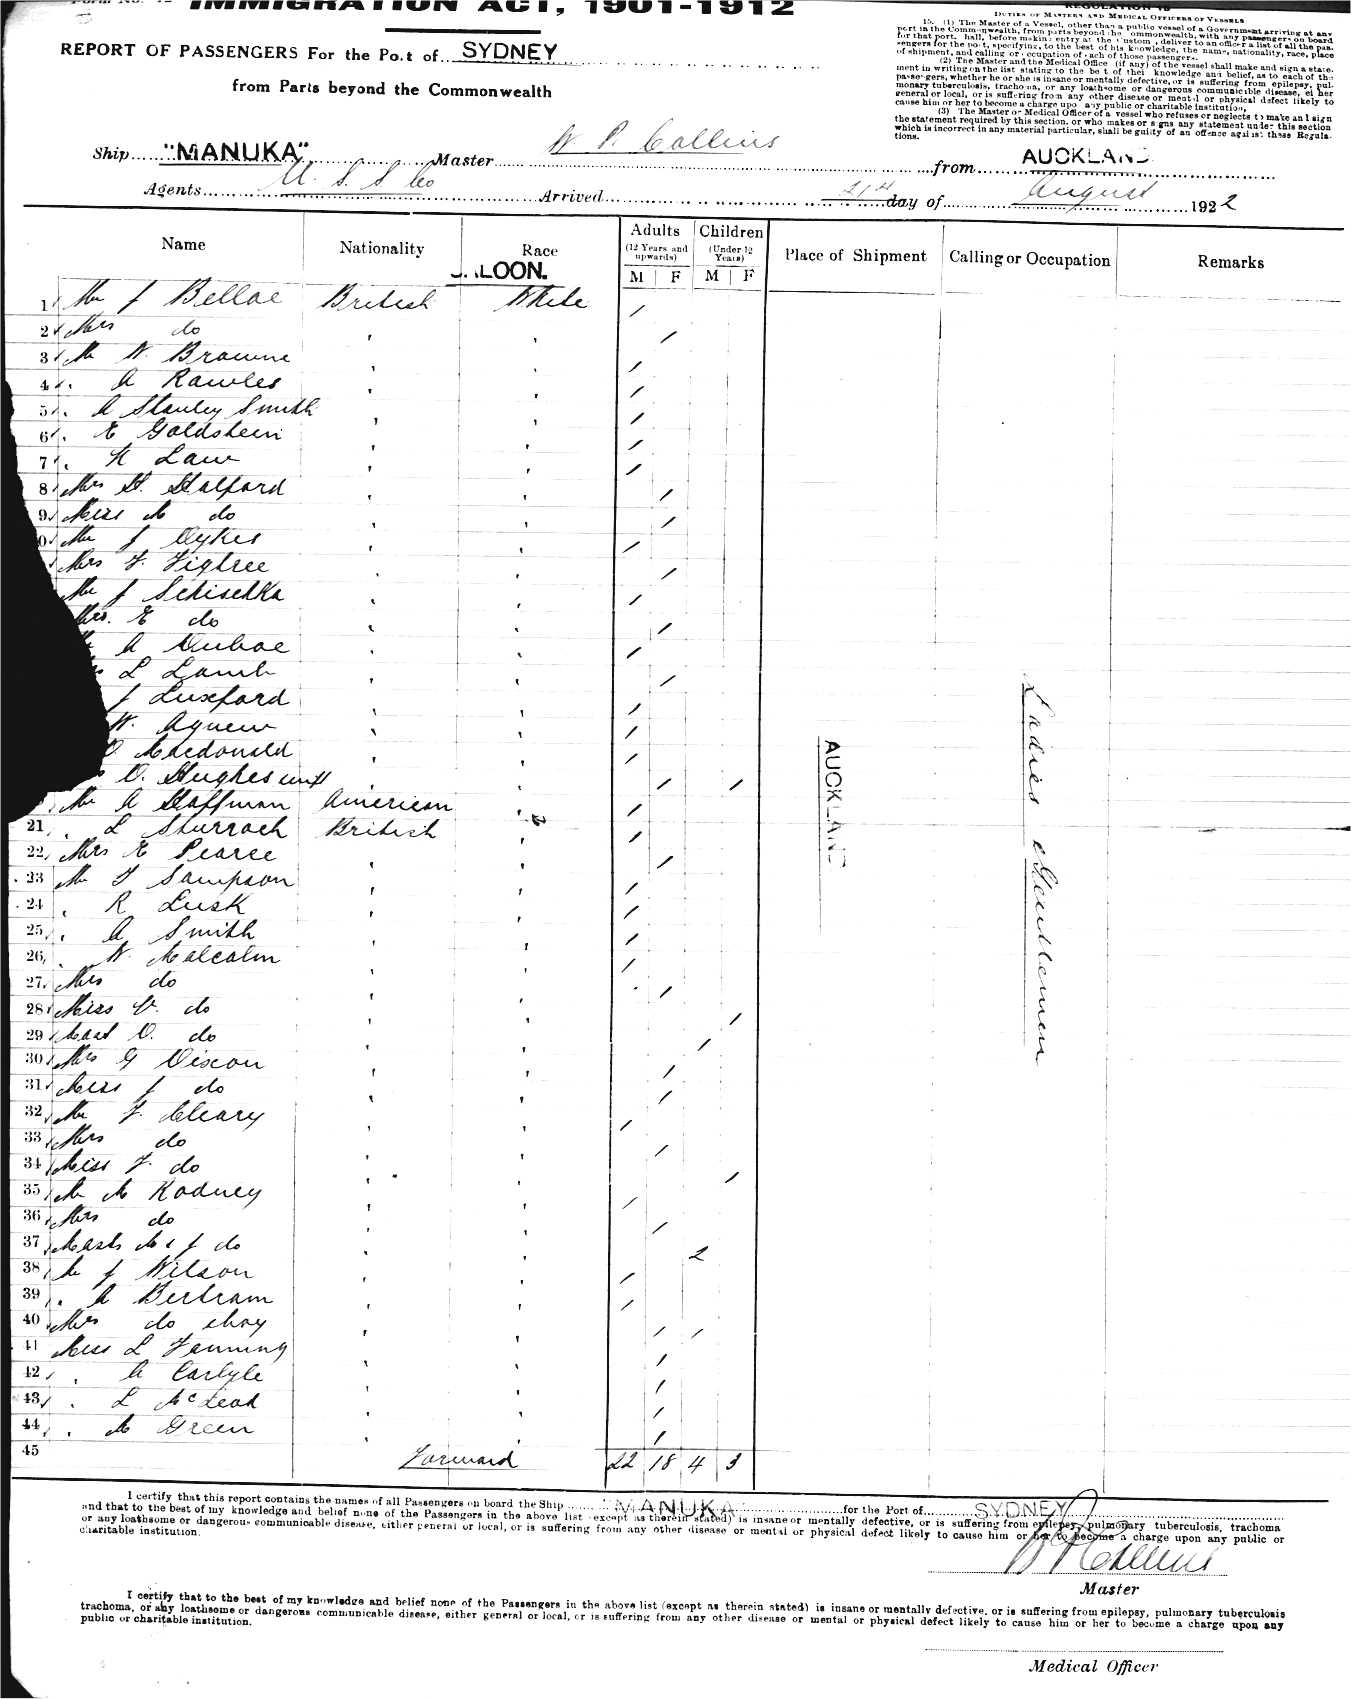 Form No. 42
IMMIGRATION ACT, 1901-1912
REPORT OF PASSENGERS For the Port of SYDNEY
from Parts beyond the Commonwealth
REGULATION 15
DUTIES OF MASTERS AND MEDICAL OFFICERS OF VESSELS
15. (1) The Master of a Vessel, other than a public vessel of a Government arriving at any
port in the Commonwealth, from parts beyond the Commonwealth, with any passengers on board
for that port, shall, before making entry at the Customs, deliver to an officer a list of all the pas-
sengers for the port, specifying, to the best of his knowledge, the name, nationality, race, place
of shipment, and calling or occupation of each of those passengers.
(2) The Master and the Medical Office (if any) of the vessel shall make and sign a state-
ment in writing on the list stating to the best of their knowledge and belief, as to each of the
passengers, whether he or she is insane or mentally defective, or is suffering from epilepsy, pul-
monary tuberculosis, trachoma, or any loathsome or dangerous communicable disease, either
general or local, or is suffering from any other disease or mental or physical defect likely to
cause him or her to become a charge upon any public or charitable institution,
(3) The Master or Medical Officer of a vessel who refuses or neglects to make and sign
the statement required by this section, or who makes or signs any statement under this section
which is incorrect in any material particular, shall be guilty of an offence against these Regula-
tions.
Ship "MANUKA" Master W P Collins from AUCKLAND
Agents U. S. S Co Arrived 21st day of August 1922
Name Nationality Race Adults (12 Years and upwards) M F Children (Under 12 Years) M F Place of Shipment Calling or Occupation Remarks
SALOON.
1 Mr J Bellae British White /
2 Mrs do " " /
3 Mr W. Browne " " /
4 " A Rawles " " /
5 " A Stanley Smith " " /
6 " E Goldstein " " /
7 " H Law " " /
8 Mrs H. Halford " " /
9 Miss M do " " /
10 Mr J Dykes " " /
Mrs F Figtree " " /
Mr J Schischka " " /
Mrs. E do " " /
A Duboe " " /
L Lamb " " /
J Luxford " " /
W. Agnew " " /
Macdonald " " /
O. Hughes inft " " / /
Mr A Hoffman American " /
21 " L Sturroch British " /
22 Mrs E Pearce " " /
23 Mr T Sampson " " /
24 " R Lusk " " /
25 " A Smith " " /
26 " W. Malcolm " " /
27 Mrs do " " /
28 Miss V. do " " /
29 Mast O. do " " /
30 Mrs G Dixon " " /
31 Miss J do " " /
32 Mr F. Cleary " " /
33 Mrs do " " /
34 Miss F. do " " /
35 Mr M Rodney " " /
36 Mrs do " " /
37 Masts M & J do " " 2
38 Mr J Wilson " " /
39 " A Bertram " " /
40 Mrs do & boy " " / /
41 Miss L Fanning " " /
42 " A Carlyle " " /
43 " L McLeod " " /
44 " M Green " " /
45 Forward 22 18 4 3
AUCKLAND
Ladies & Gentlemen
I certify that this report contains the names of all Passengers on board the Ship MANUKA for the Port of SYDNEY
and that to the best of my knowledge and belief none of the Passengers in the above list (except as therein stated) is insane or mentally defective, or is suffering from epilepsy, pulmonary tuberculosis, trachoma
or any loathsome or dangerous communicable disease, either general or local, or is suffering from any other disease or mental or physical defect likely to cause him or her to become a charge upon any public or
charitable institution.
W P Collins
Master
I certify that to the best of my knowledge and belief none of the Passengers in the above list (except as therein stated) is insane or mentally defective, or is suffering from epilepsy, pulmonary tuberculosis
trachoma, or any loathsome or dangerous communicable disease, either general or local, or is suffering from any other disease or mental or physical defect likely to cause him or her to become a charge upon any
public or charitable institution.
Medical Officer